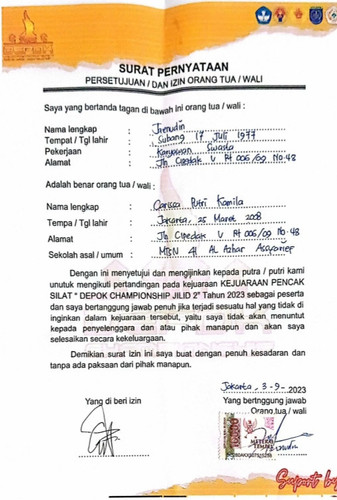 SURAT PERNYATAAN
PERSETUJUAN / DAN IZIN ORANG TUA / WALI
Saya yang bertanda tagan di bawah ini orang tua / wali :
Nama lengkap : Jaenudin
Tempat / Tgl lahir : Subang 17 Juli 1977
Pekerjaan : Karyawan Swasta
Alamat : Jln Cipedak V Rt 006/09 No.48
Adalah benar orang tua / wali :
Nama lengkap : Carissa Putri Kamila
Tempa / Tgl lahir : Jakarta, 25 Maret 2008
Alamat : Jln Cipedak V Rt 006/09 No.48
Sekolah asal / umum : 41 Al Azhar Asy
Dengan ini menyetujui dan mengijinkan kepada putra / putri kami
unutuk mengikuti pertandingan pada kejuaraan KEJUARAAN PENCAK
SILAT " DEPOK CHAMPIONSHIP JILID 2" Tahun 2023 sebagai peserta
dan saya bertanggung jawab penuh jika terjadi sesuatu hal yang tidak di
inginkan dalam kejuaraan tersebut, yaitu saya tidak akan menuntut
kepada penyelenggara dan atau pihak manapun dan akan saya
selesaikan secara kekeluargaan.
Demikian surat izin ini saya buat dengan penuh kesadaran dan
tanpa ada paksaan dari pihak manapun.
Jakarta, 3-9-2023
Yang di beri izin
Yang bertnggung jawab
Orang tua / wali
10000
METERAI
TEMPEL
Suport by